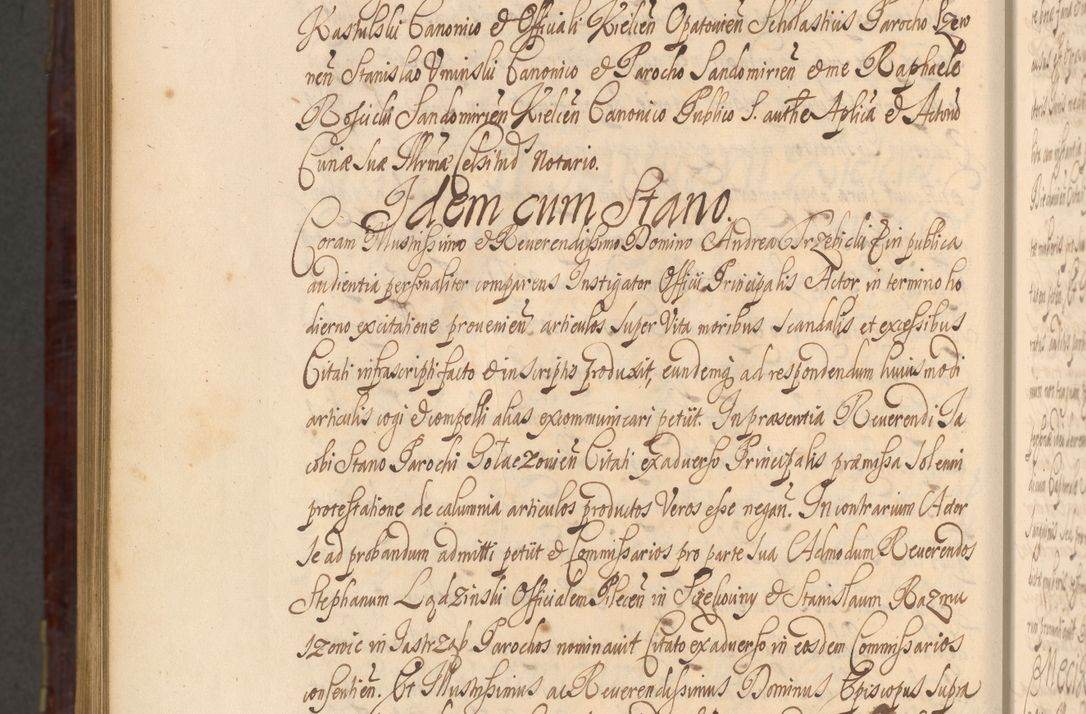 Kastulski Canonico et Officiali Kielceñ Opatovieñ Scholastico Parocho
neñ Stanislao Uminski Canonico et Parocho Sandomirieñ et me Raphaele
Sandomirieñ Kielceñ Canonico Publico S. auth̃e Aplica et Actorũ
Curiæ suæ Illrmæ Celsitud Notario.
Idem cum Stano.
Coram Illustrissimo et Reverendissimo Domino Andrea Trzebicki in publica
audientia personaliter comparens Instigator Officii Principalis Actor in termino ho
dierno ex citatione provenieñ articulos super Vita moribus scandalis et excessibus
Citati infrascripti facto et in scriptis produxit, eundemq, ad respondendum huiusmodi
articulis cogi et compelli alias excommunicari petiit. In præsentia Reverendi Ia
cobi Stano Parochi Citati ex adverso Principalis præmissa solenni
protestatione de calumnia articulos productos Veros esse negañ. In contrarium Actor
se ad probandum admitti petiit et Commissarios pro parte sua Admodum Reverendos
Stephanum Officialem Pilceñ in et Stanislaum Razmu
szowic in Iastrząb Parochos nominavit Citato ex adverso in eosdem Commissarios
consentieñ. Et Illustrissimus ac Reverendissimus Dominus Episcopus supra